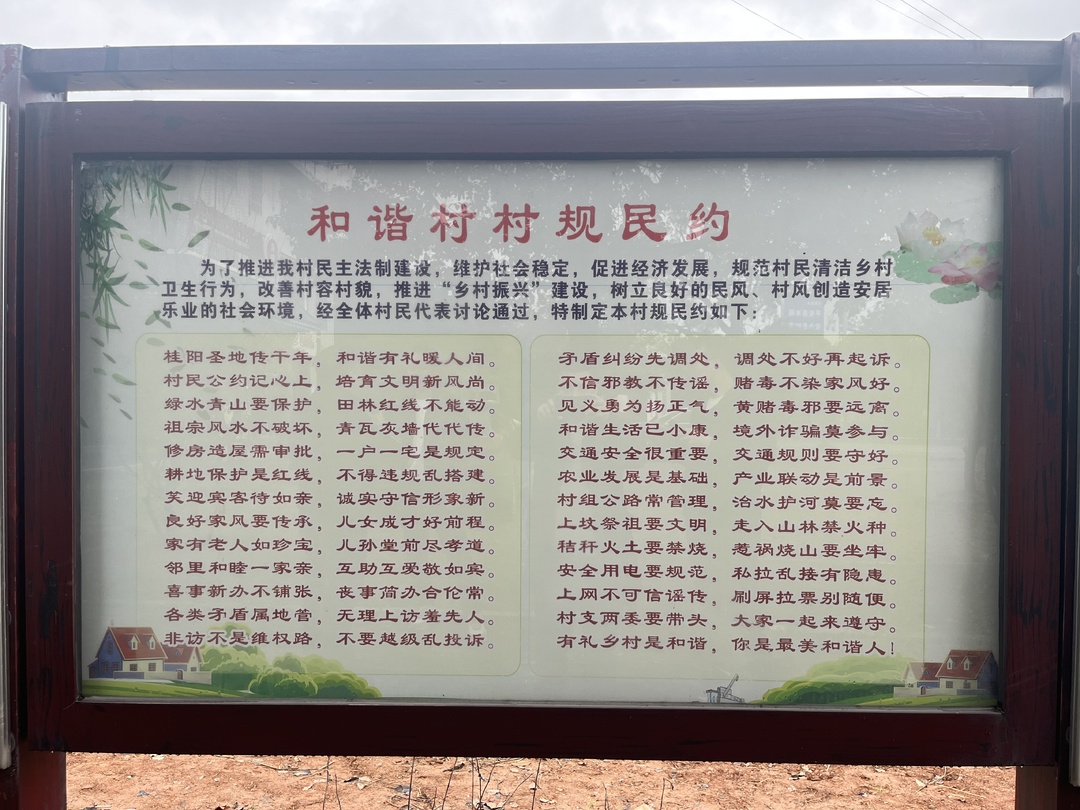 和谐村村规民约
为了推进我村民主法制建设，维护社会稳定，促进经济发展，规范村民清洁乡村
卫生行为，改善村容村貌，推进“乡村振兴”建设，树立良好的民风、村风创造安居
乐业的社会环境，经全体村民代表讨论通过，特制定本村规民约如下：
桂阳圣地传千年，和谐有礼暖人间。
村民公约记心上，培育文明新风尚。
绿水青山要保护，田林红线不能动。
祖宗风水不破坏，青瓦灰墙代代传。
修房造屋需审批，一户一宅是规定。
耕地保护是红线，不得违规乱搭建。
笑迎宾客待如亲，诚实守信形象新。
良好家风要传承，儿女成才好前程。
家有老人如珍宝，儿孙堂前尽孝道。
邻里和睦一家亲，互助互爱敬如宾。
喜事新办不铺张，丧事简办合伦常。
各类矛盾属地管，无理上访羞先人。
非访不是维权路，不要越级乱投诉。
矛盾纠纷先调处，调处不好再起诉。
不信邪教不传谣，赌毒不染家风好。
见义勇为扬正气，黄赌毒邪要远离。
和谐生活已小康，境外诈骗莫参与。
交通安全很重要，交通规则要守好。
农业发展是基础，产业联动是前景。
村组公路常管理，治水护河莫要忘。
上坟祭祖要文明，走入山林禁火种。
秸秆火土要禁烧，惹祸烧山要坐牢。
安全用电要规范，私拉乱接有隐患。
上网不可信谣传，刷屏拉票别随便。
村支两委要带头，大家一起来遵守。
有礼乡村是和谐，你是最美和谐人！